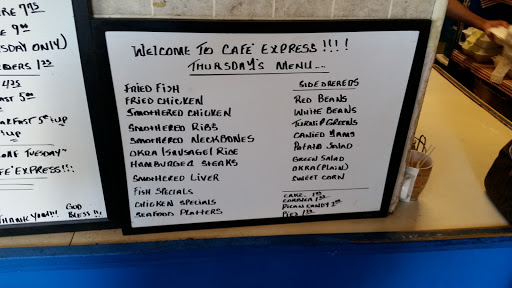 RE 7.95
E 9.00
SDAY ONLY)
ORDERS 1.25
4.25
FAST 5.00
BREAKFAST 5.00 &UP
&UP
OME TUESDAY~
FE' EXPRESS!!!
THANK YOU!!!
GOD
BLESS !!
WELCOME TO CAFE' EXPRESS !!!!
THURSDAY'S MENU....
FRIED FISH
FRIED CHICKEN
SMOTHERED CHICKEN
SMOTHERED RIBS
SMOTHERED NECKBONES
OKRA/SAUSAGE/RICE
HAMBURGER STEAKS
SMOTHERED LIVER
FISH SPECIALS
CHICKEN SPECIALS
SEAFOOD PLATTERS
SIDE ORDERERS
RED BEANS
WHITE BEANS
TURNIP GREENS
CANIED YAMS
POTATO SALAD
GREEN SALAD
OKRA (PLAIN)
SWEET CORN
CAKE
PECAN CANDY
PIES